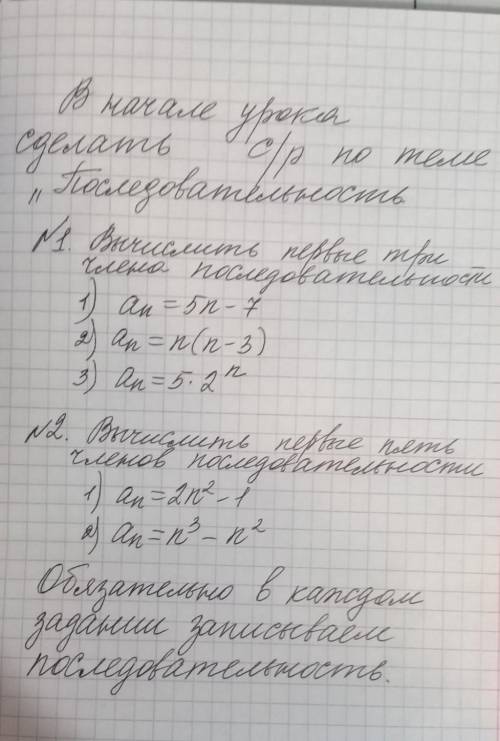 В начале урока
сделать с/р по теме
„Последовательность
№1. Вычислить первые три
члена последовательности
1) aₙ = 5n - 7
2) aₙ = n(n-3)
3) aₙ = 5·2ⁿ
№2. Вычислить первые пять
членов последовательности
1) aₙ = 2n² - 1
2) aₙ = n³ - n²
Обязательно в каждом
задании записываем
последовательность.